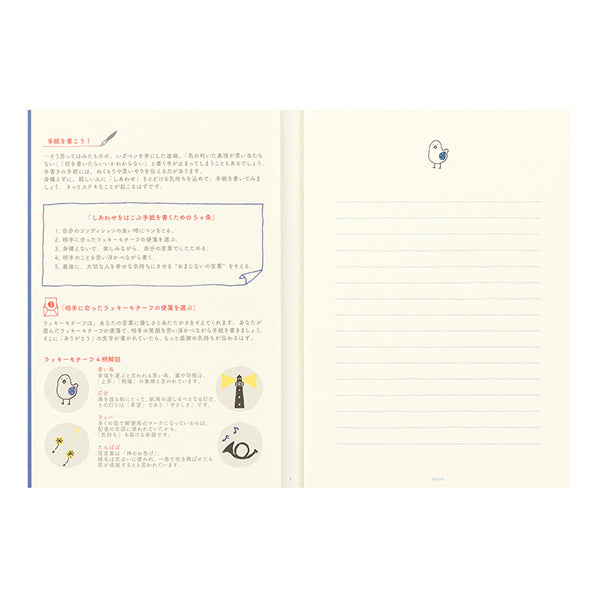 手紙を書こう！
…そう思ってはみたものの、いざペンを手にした途端、「気の利いた表現が思い当たら
ない」「何を書いたらいいかわからない」と書く手が止まってしまうこともあるでしょう。
手書きの手紙には、ぬくもりや思いやりを伝える力があります。
身構えずに、親しい人に「しあわせ」をとどける気持ちを込めて、手紙を書いてみま
しょう。きっとステキなことが起こるはずです。
「しあわせをはこぶ手紙を書くための5ヶ条」
1. 自分のコンディションの良い時にペンをとる。
2. 相手に合ったラッキーモチーフの便箋を選ぶ。
3. 身構えないで、楽しみながら、自分の言葉でしたためる。
4. 相手のことを思い浮かべながら書く。
5. 最後に、大切な人を幸せな気持ちにさせる“おまじないの言葉”をそえる。
「相手に合ったラッキーモチーフの便箋を選ぶ」
ラッキーモチーフは、あなたの言葉に優しさとあたたかさをそえてくれます。あなたが
選んだラッキーモチーフの便箋で、相手の笑顔を思い浮かべながら手紙を書きましょう。
そこに「ありがとう」の文字が書かれていたら、もっと感謝の気持ちが伝わるはず。
ラッキーモチーフ4柄解説
青い鳥
幸福を運ぶと言われる青い鳥。翼や羽根は、
「上昇」「飛躍」の象徴と言われています。
灯台
海を渡る船にとって、航海の道しるべとなる灯台。
その灯りは「希望」であり「やさしさ」です。
ラッパ
多くの国で郵便局のマークになっているのは、
配達の合図に使われていたから。
「気持ち」を届ける楽器です。
たんぽぽ
花言葉は「神のお告げ」。
綿毛は恋占いに使われ、一息で吹き飛ばせたら
恋が成就するとも言われています。
MIDORI